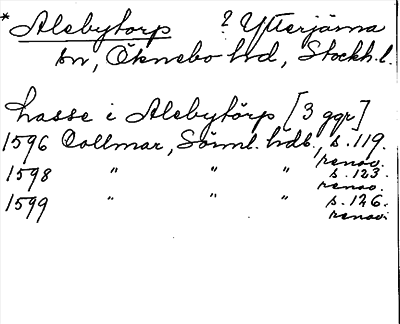 * Alebytorp ? Ytterjärna
sn, Öknebo hd, Stockh. l.
Lasse i Alebytörp [3 ggr]
1596 Collmar, Sörml. hdl., s. 119.
renov.
1598 " " " s. 123.
renov.
1599 " " " s. 126.
renov.